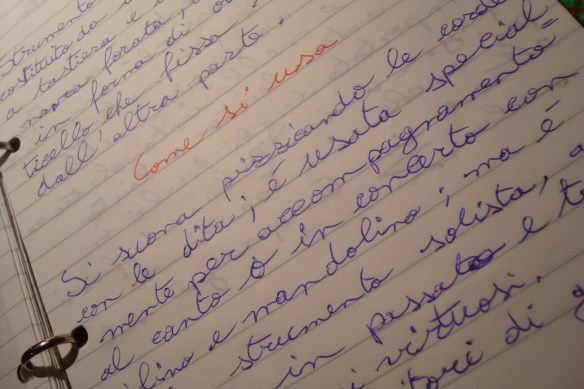 Strumento
costituito da
a tastiera e
in forma di
ticello che fissa
dall'altra parte.
Come si usa
Si suona pizzicando le corde
con le dita; è usata special=
mente per accompagnamento
al canto o in concerto con
lino e mandolino; ma è
strumento solista, a
in passato e
i virtuosi.
di